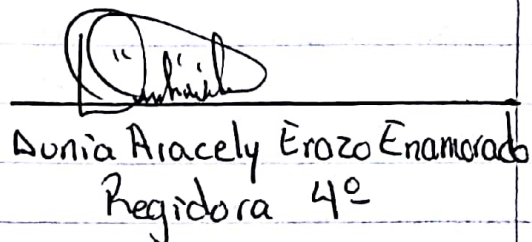 Dunia Aracely Erazo Enamorado
Regidora 4º